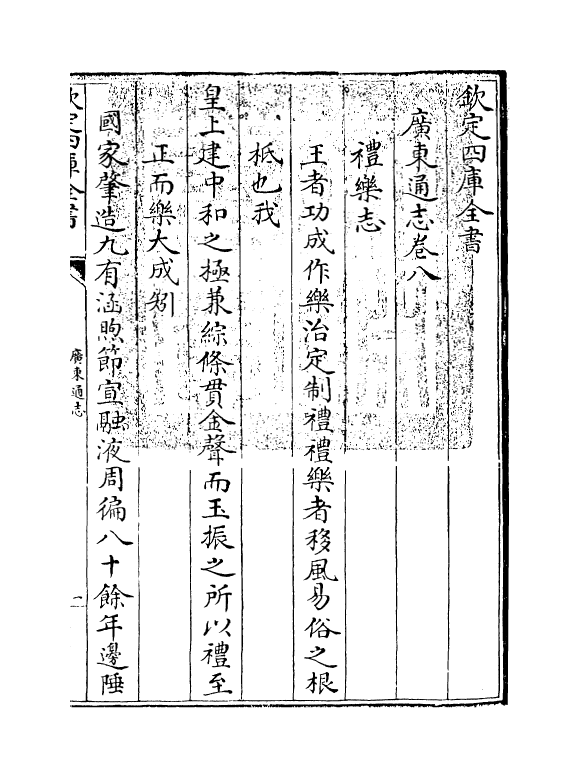 欽定四庫全書
廣東通志卷八
禮樂志
王者功成作樂治定制禮禮樂者移風易俗之根
柢也我
皇上建中和之極兼綜條貫金聲而玉振之所以禮至
正而樂大成矧
國家肇造九有涵煦節宣融液周徧八十餘年邊陲
欽定四庫全書
廣東通志